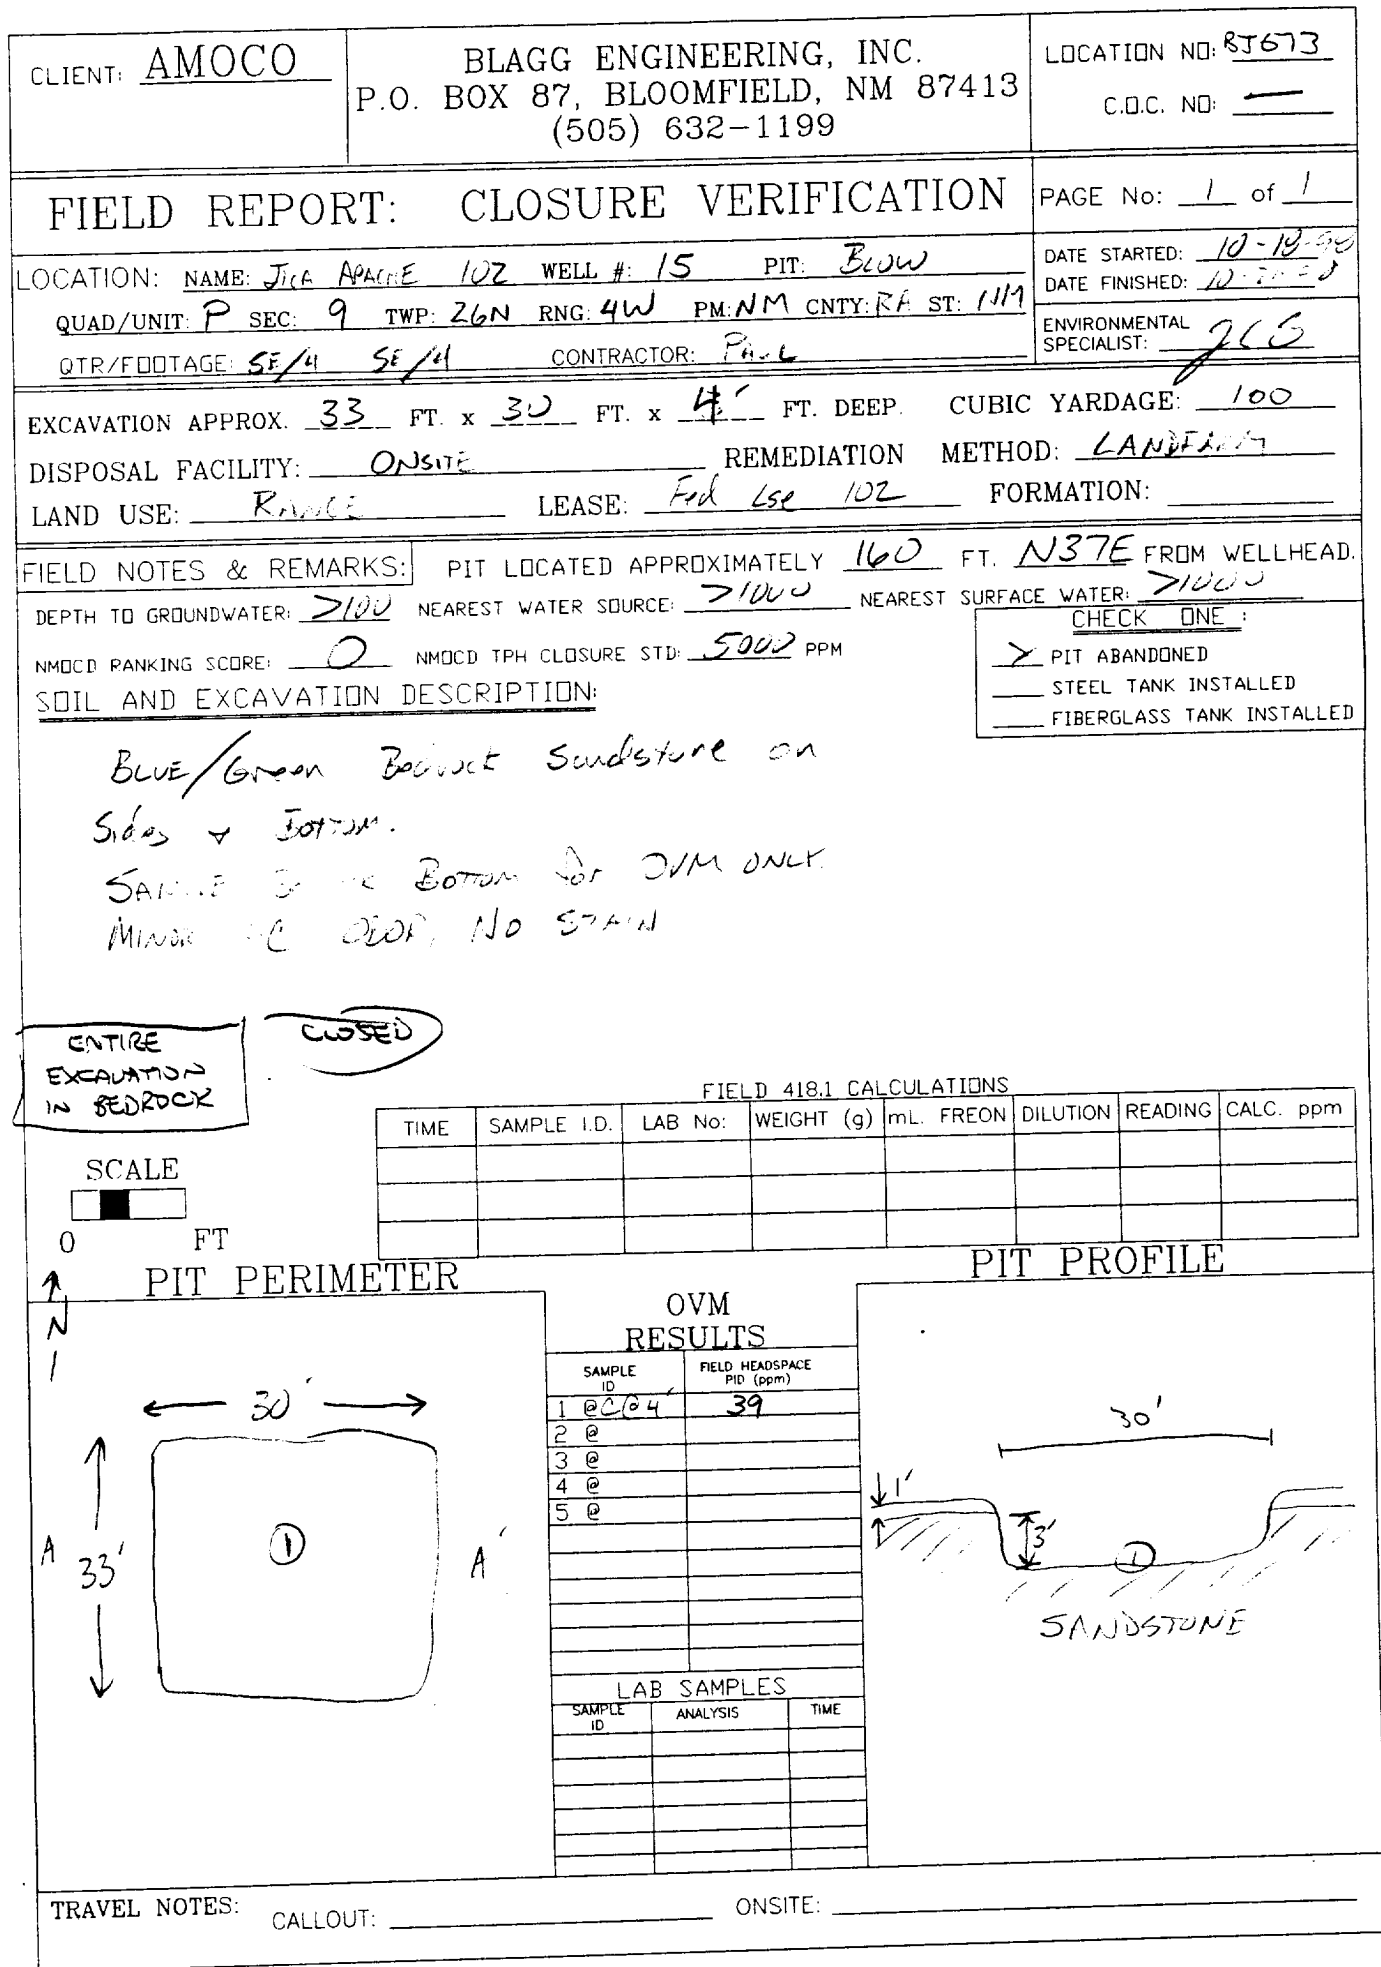 CLIENT: AMOCO
BLAGG ENGINEERING, INC.
P.O. BOX 87, BLOOMFIELD, NM 87413
(505) 632-1199
LOCATION NO: BJ673
C.O.C. NO: —
FIELD REPORT: CLOSURE VERIFICATION
PAGE No: 1 of 1
LOCATION: NAME: JICA APACHE 102 WELL #: 15 PIT: BLOW
QUAD/UNIT: P SEC: 9 TWP: 26N RNG: 4W PM: NM CNTY: RA ST: NM
QTR/FOOTAGE: SE/4 SE/4 CONTRACTOR: PAUL
DATE STARTED: 10-18-
DATE FINISHED: 10-
ENVIRONMENTAL
SPECIALIST:
EXCAVATION APPROX. 33 FT. x 30 FT. x 4' FT. DEEP. CUBIC YARDAGE: 100
DISPOSAL FACILITY: ONSITE REMEDIATION METHOD: LANDFARM
LAND USE: RANGE LEASE: Fed Lse 102 FORMATION:
FIELD NOTES & REMARKS: PIT LOCATED APPROXIMATELY 160 FT. N37E FROM WELLHEAD.
DEPTH TO GROUNDWATER: >100 NEAREST WATER SOURCE: >1000 NEAREST SURFACE WATER: >1000
NMOCD RANKING SCORE: 0 NMOCD TPH CLOSURE STD: 5000 PPM
CHECK ONE :
X PIT ABANDONED
STEEL TANK INSTALLED
FIBERGLASS TANK INSTALLED
SOIL AND EXCAVATION DESCRIPTION:
BLUE/Green Bedrock Sandstone on
Sides & BOTTOM.
SAMPLE BOTTOM for OVM ONLY.
MINOR HC ODOR, NO STAIN
ENTIRE
EXCAVATION
IN BEDROCK
CLOSED
FIELD 418.1 CALCULATIONS
TIME SAMPLE I.D. LAB No: WEIGHT (g) mL. FREON DILUTION READING CALC. ppm
SCALE
0 FT
PIT PERIMETER
N
30'
A 33' 1 A'
OVM
RESULTS
SAMPLE ID FIELD HEADSPACE PID (ppm)
1 @ C@4' 39
2 @
3 @
4 @
5 @
LAB SAMPLES
SAMPLE ID ANALYSIS TIME
PIT PROFILE
30'
1'
3'
1
SANDSTONE
TRAVEL NOTES: CALLOUT: ONSITE: